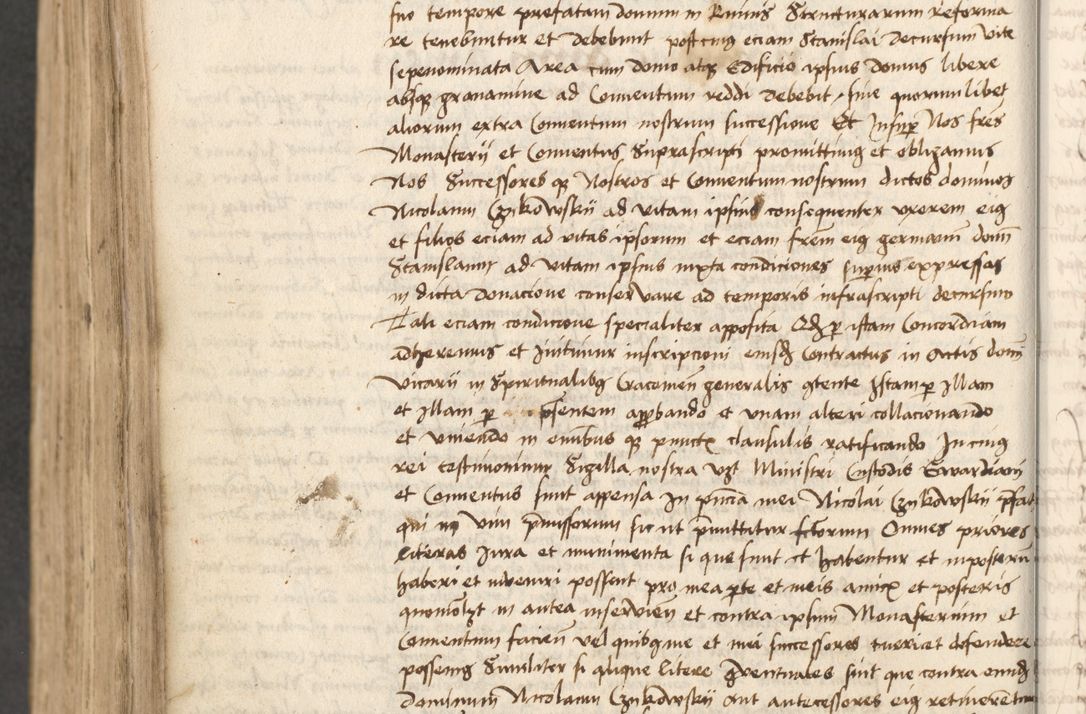 suo tempore prefatam domum in Ruinis Structurarum reforma
re tenebuntur et debebunt post cuius eciam Stanislai decursum vite
sepenominata Area cum domo atque Edificio ipsius domus libere
absque granamine ad Conventum reddi debebit sine quorumlibet
aliorum extra Conventum nostrum successione Et Insuper Nos fres
Monasterij et Conventus Suprascripti promittimus et obligamus
Nos Successoresque Nostros et Conventum nostrum dictos dominos
Nicolaum Czikowskij ad vitam ipsius consequenter vxorem eius
et filios eciam ad vitas ipsorum et eciam frem eius germanum dom
Stanislaum ad vitam ipsius iuxta condiciones superius expressas
in dicta donacione conservare ad temporis infrascripti decursum
Tali eciam condicione specialiter apposita Qd per istam Concordiam
adheremus et Innitimur inscripcioni eiusd Contractus in Actis domi
Vicarij in Spiritualibus Cracovien generalis contente Istam per Illam
et Illam per psentem approbando et vnam alteri collacionando
et vniendo in omibus que punctis clausulis ratificando In cuius
rei testimonium Sigilla nostra vzt Ministri Custodis Gwardiani
et Conventus sunt appensa In pncia mei Nicolai Czikowskij pfat
qui vim pmissorum sic ut pmittitur fctorum Omnes priores
literas Iura et munimenta si que sunt et habentur et inposterum
haberi et inveniri possent pro mea pte et meis amicis et posteris
quomodolzt in antea inservien et contra ipsum Monasterium et
Conventum facien vel quibus me et mei successores tueri et defendere
possemus Similiter si aliique litere que contra eund
Dominum Nicolaum Czikowskij aut antecessores eius retinerentur